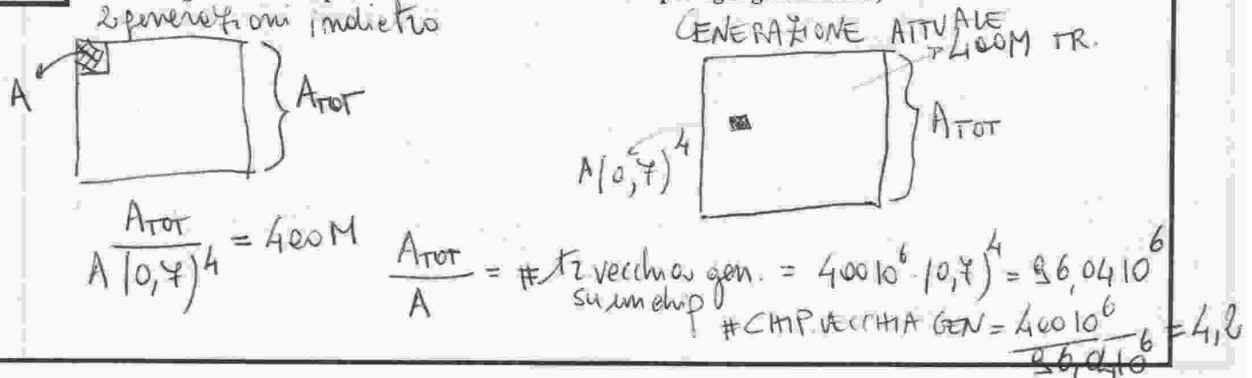 2 generazioni indietro
A
A_TOT
GENERAZIONE ATTUALE
→ 400M TR.
A(0,7)^4
A_TOT
A_TOT / A(0,7)^4 = 400M
A_TOT / A = # tr vecchia gen. su un chip = 400 10^6 · (0,7)^4 = 96,04 10^6
# CHIP VECCHIA GEN = 400 10^6 / 96,04 10^6 = 4,2